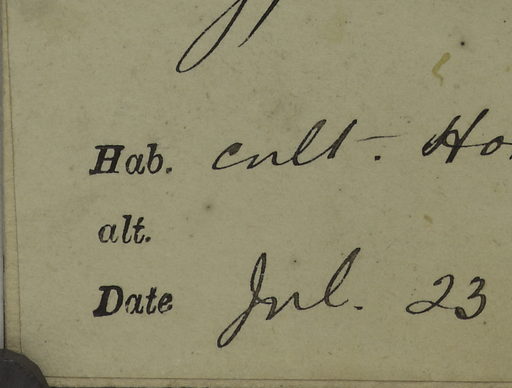 Hab. cult. Ho
alt.
Date Jul. 23